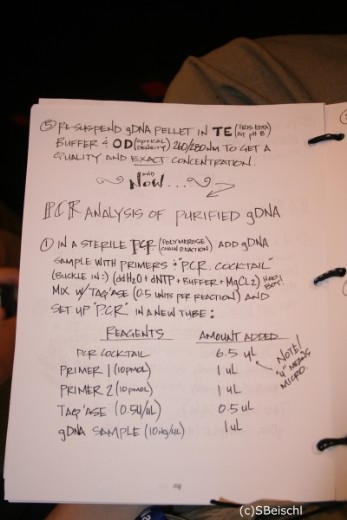 ⑤ RE-SUSPEND gDNA PELLET IN TE (TRIS EDTA AT pH 8)
BUFFER & OD (OPTICAL DENSITY) 260/280nm TO GET A
QUALITY AND EXACT CONCENTRATION.
AND
NOW...
PCR ANALYSIS OF PURIFIED gDNA
① IN A STERILE PCR (POLYMERASE CHAIN REACTION) ADD gDNA
SAMPLE WITH PRIMERS & "PCR COCKTAIL"
(BUCKLE IN:) (ddH2O + dNTP + BUFFER + MgCl2)
MIX W/ TAQ'ASE (0.5 UNITS PER REACTION) AND
SET UP "PCR" IN A NEW TUBE:
REAGENTS AMOUNT ADDED
PCR COCKTAIL 6.5 uL
PRIMER 1 (10pmol) 1 uL
PRIMER 2 (10pmol) 1 uL
TAQ'ASE (0.5U/uL) 0.5 uL
gDNA SAMPLE (10ng/uL) 1uL
NOTE!
"u" MEANS
MICRO.
(c)SBeischl